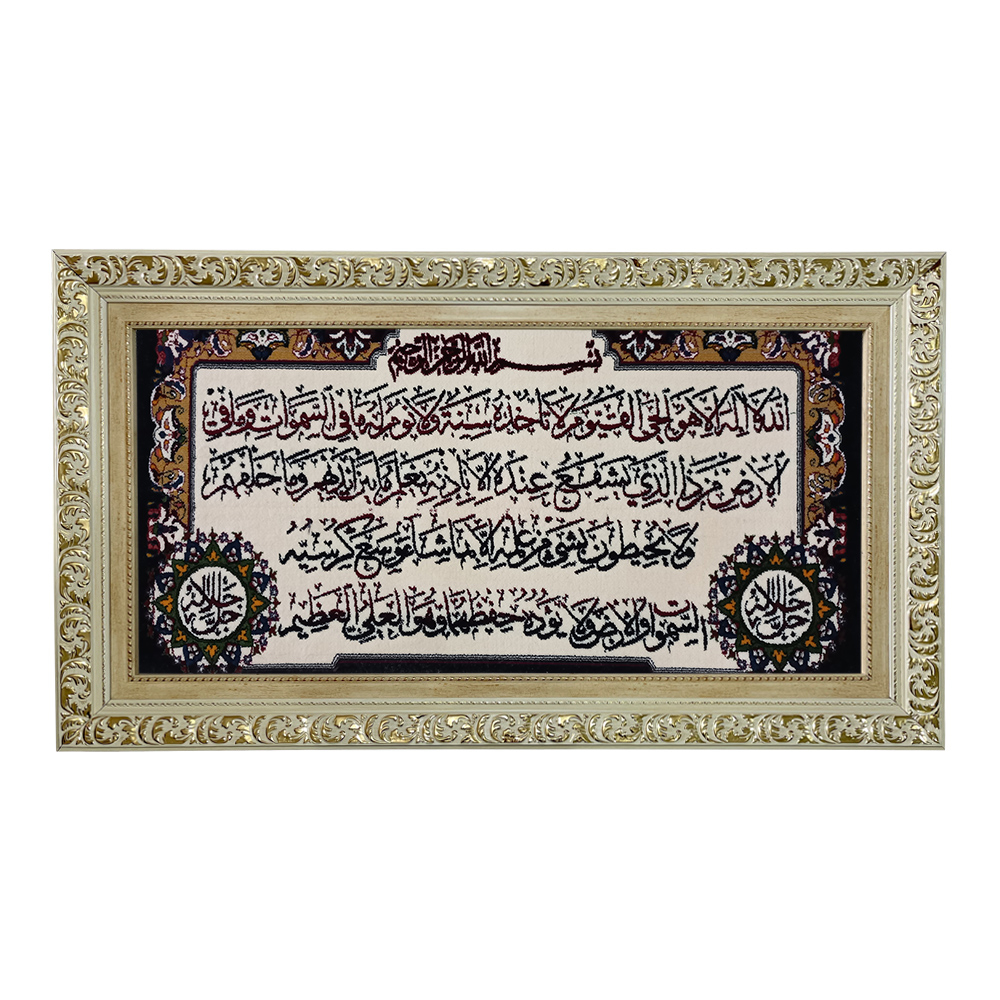 بسم الله الرحمن الرحيم
الله لا اله الا هو الحي القيوم لا تاخذه سنة ولا نوم له ما في السموات وما في
الارض من ذا الذي يشفع عنده الا باذنه يعلم ما بين ايديهم وما خلفهم
ولا يحيطون بشيء من علمه الا بما شاء وسع كرسيه
السموات والارض ولا يؤده حفظهما وهو العلي العظيم
الله جل جلاله
الله جل جلاله